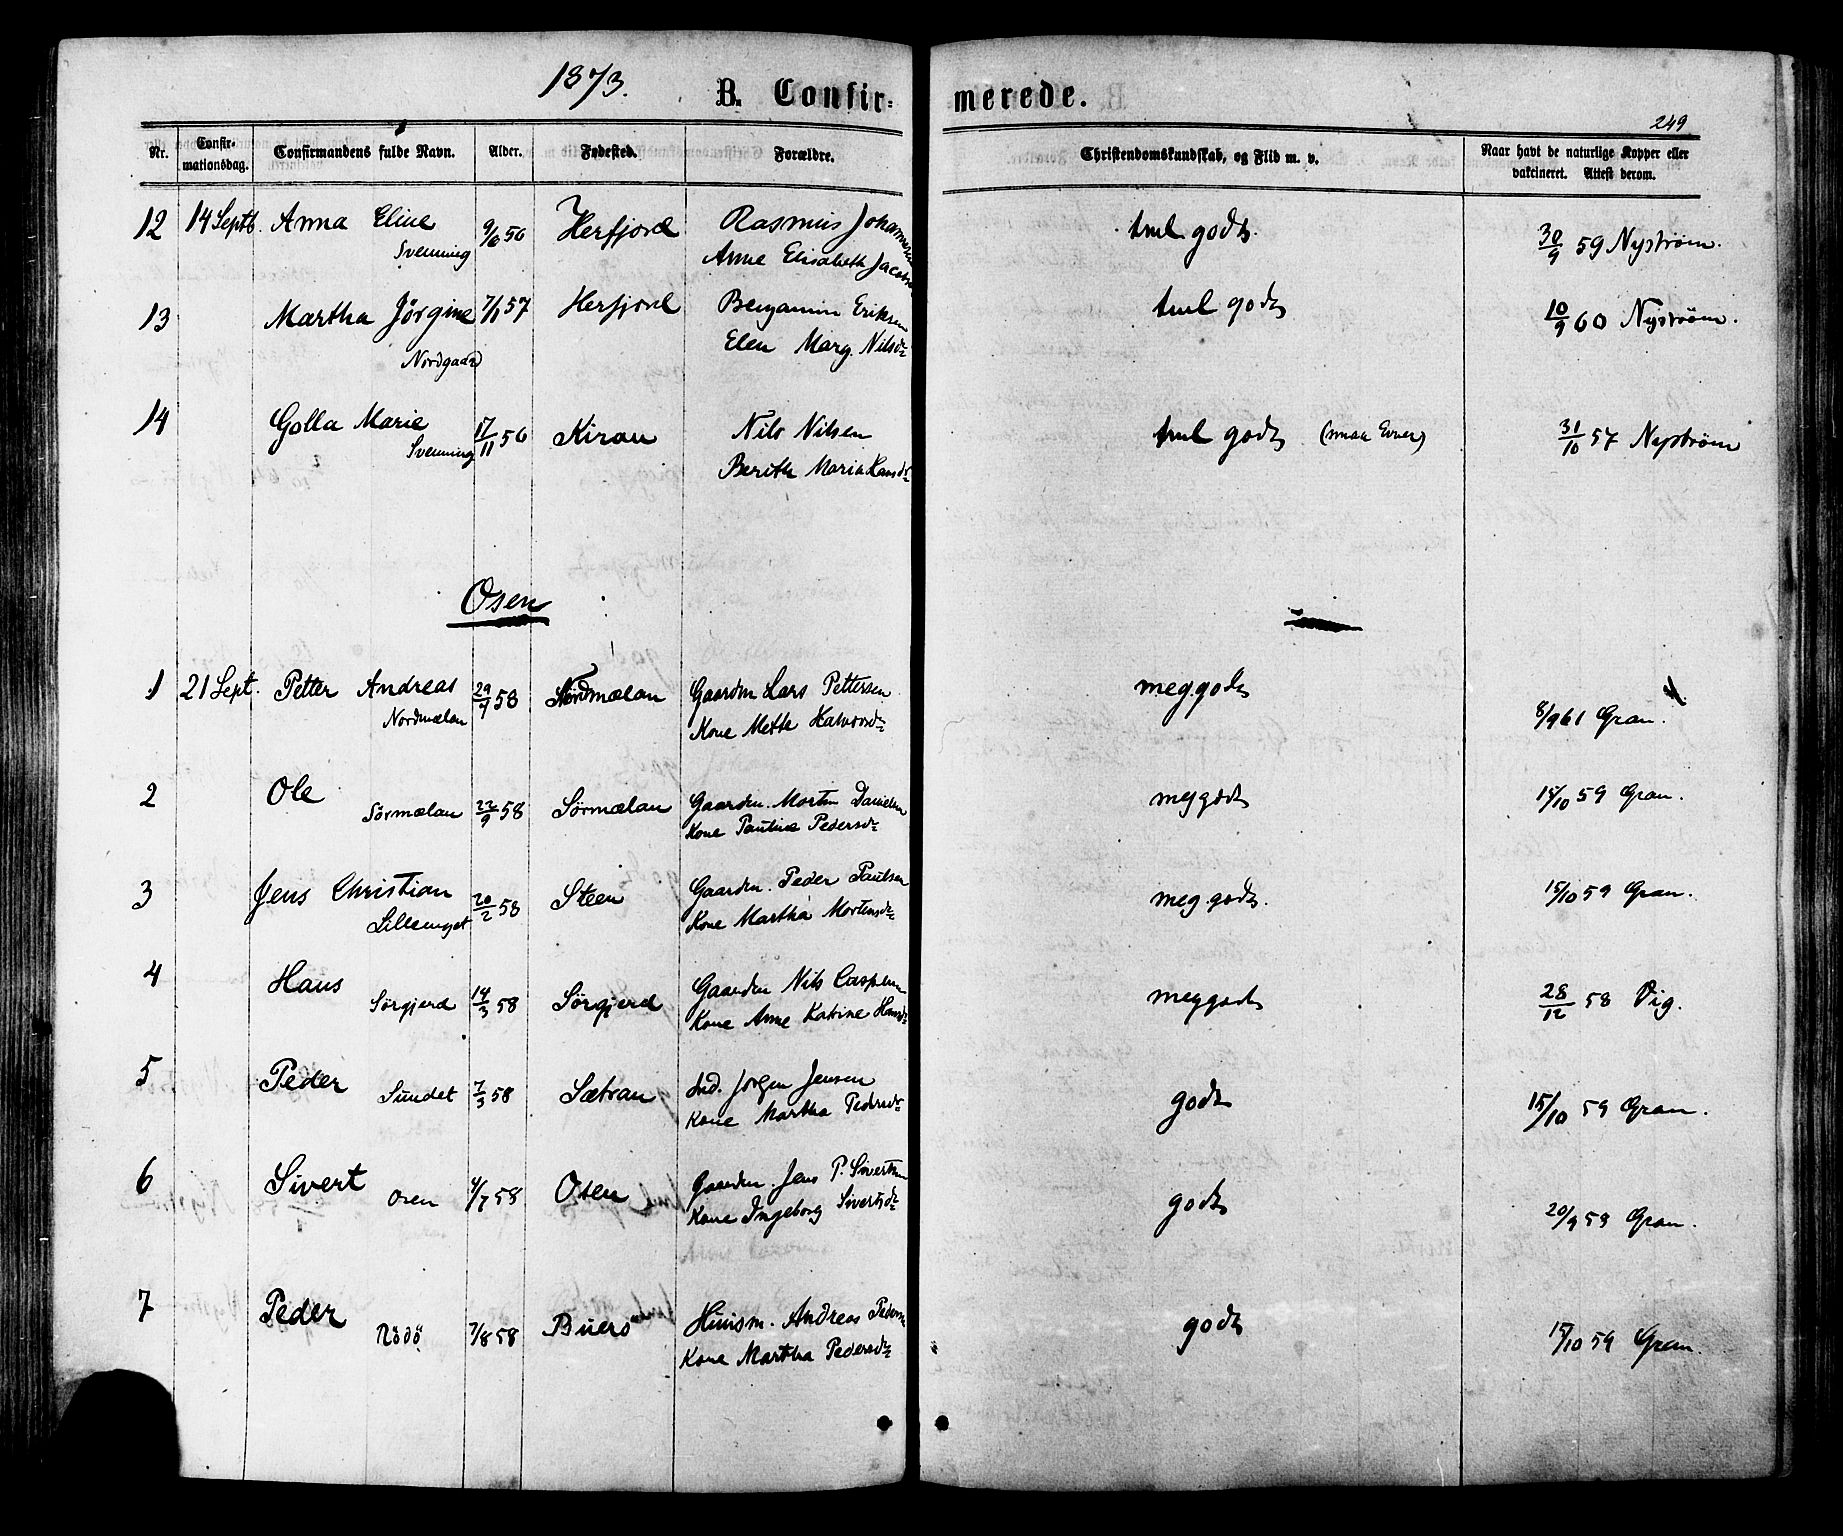 1873.
B. Confir-
merede.
249
Nr. Confir-mationsdag. Confirmandens fulde Navn. Alder. Fødested. Forældre. Christendomskundskab, og Flid m. v. Naar havt de naturlige Kopper eller vakcineret. Attest derom.
12 14 Septb. Anna Eline 9/6 56 Herfjord Rasmus tml godt. 30/9 59 Nystrøm.
Svenning Anne Elisabeth
13 Martha Jørgine 7/1 57 Herfjord Benjamin Eriksen tml godt 10/9 60 Nystrøm.
Nordgaard Elen Marg. Nilsdr
14 Golla Marie 17/11 56 Kiran Nils Nilsen tml godt 31/10 57 Nystrøm
Svenning Berith Maria Hansdr
Osen
1 21 Sept. Petter Andreas 29/9 58 Nordmælan Gaardm Lars Pettersen meg godt 8/9 61 Gran.
Nordmælan Kone Mette
2 Ole Sørmælan 22/9 58 Sørmælan Gaardm. Morten Danielsen meg godt 15/10 59 Gran.
Kone Pauline Pedersdr
3 Jens Christian 20/2 58 Steen Gaardm. Peder Paulsen meg godt. 15/10 59 Gran.
Lilleenget Kone Martha Mortensdr
4 Hans Sørgjerd 14/3 58 Sørgjerd Gaardm Nils Caspersen meg godt 28/12 58 Vig.
Kone Anne Katrine Hansdr
5 Peder Sundet 7/3 58 Sætran Ind. Jørgen Jensen godt 15/10 59 Gran.
Kone Martha Pedersdr
6 Sivert Osen 4/7 58 Osen Gaardm. Jens P. Sivertsen godt 20/9 59 Gran.
Kone Ingeborg Sivertsdr
7 Peder Rödö 7/8 58 Buerö Huusm. Andreas Pedersen godt 15/10 59 Gran.
Kone Martha Pedersdr